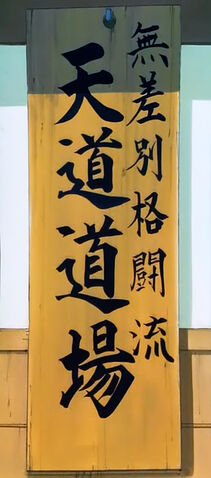 無差別格闘流
天道道場